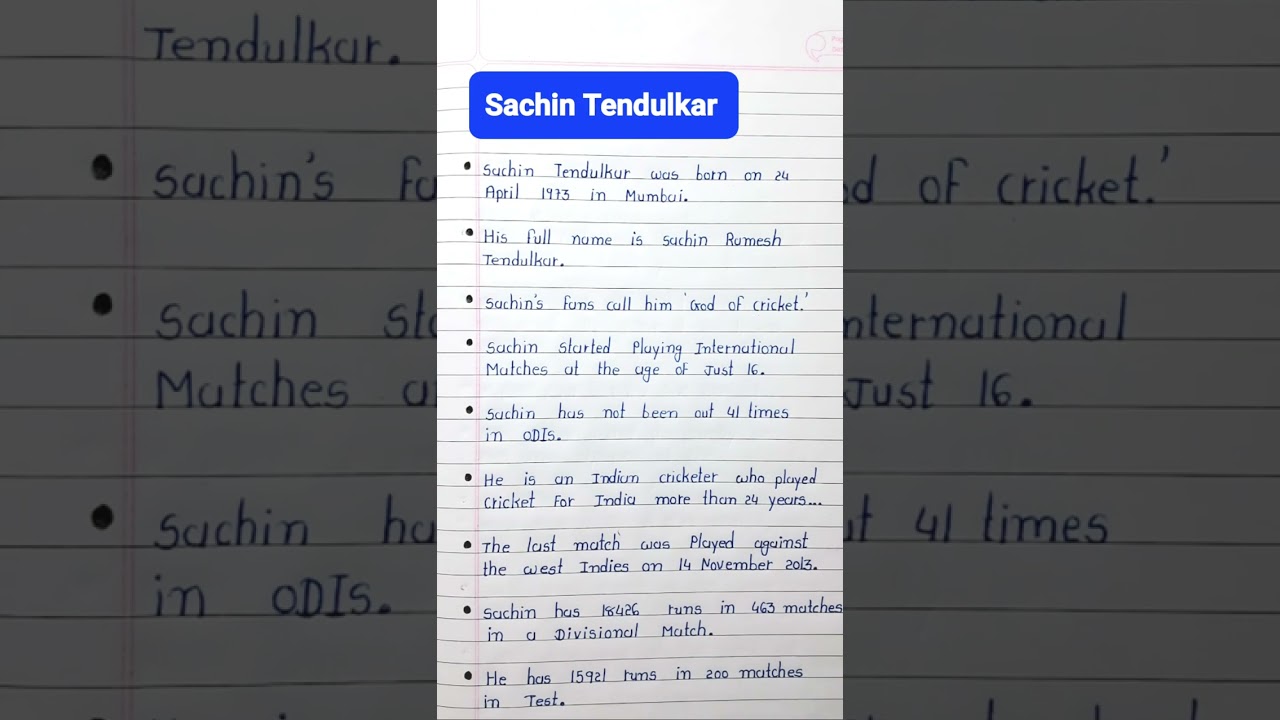 Sachin Tendulkar
• Sachin Tendulkar was born on 24
April 1973 in Mumbai.
• His full name is sachin Ramesh
Tendulkar.
• Sachin's Fans call him 'God of cricket.'
• Sachin started Playing International
Matches at the age of Just 16.
• Sachin has not been out 41 times
in ODIs.
• He is an Indian cricketer who played
Cricket For India more than 24 years...
• The last match was Played against
the west Indies on 14 November 2013.
• Sachin has 18426 runs in 463 matches
in a Divisional Match.
• He has 15921 runs in 200 matches
in Test.